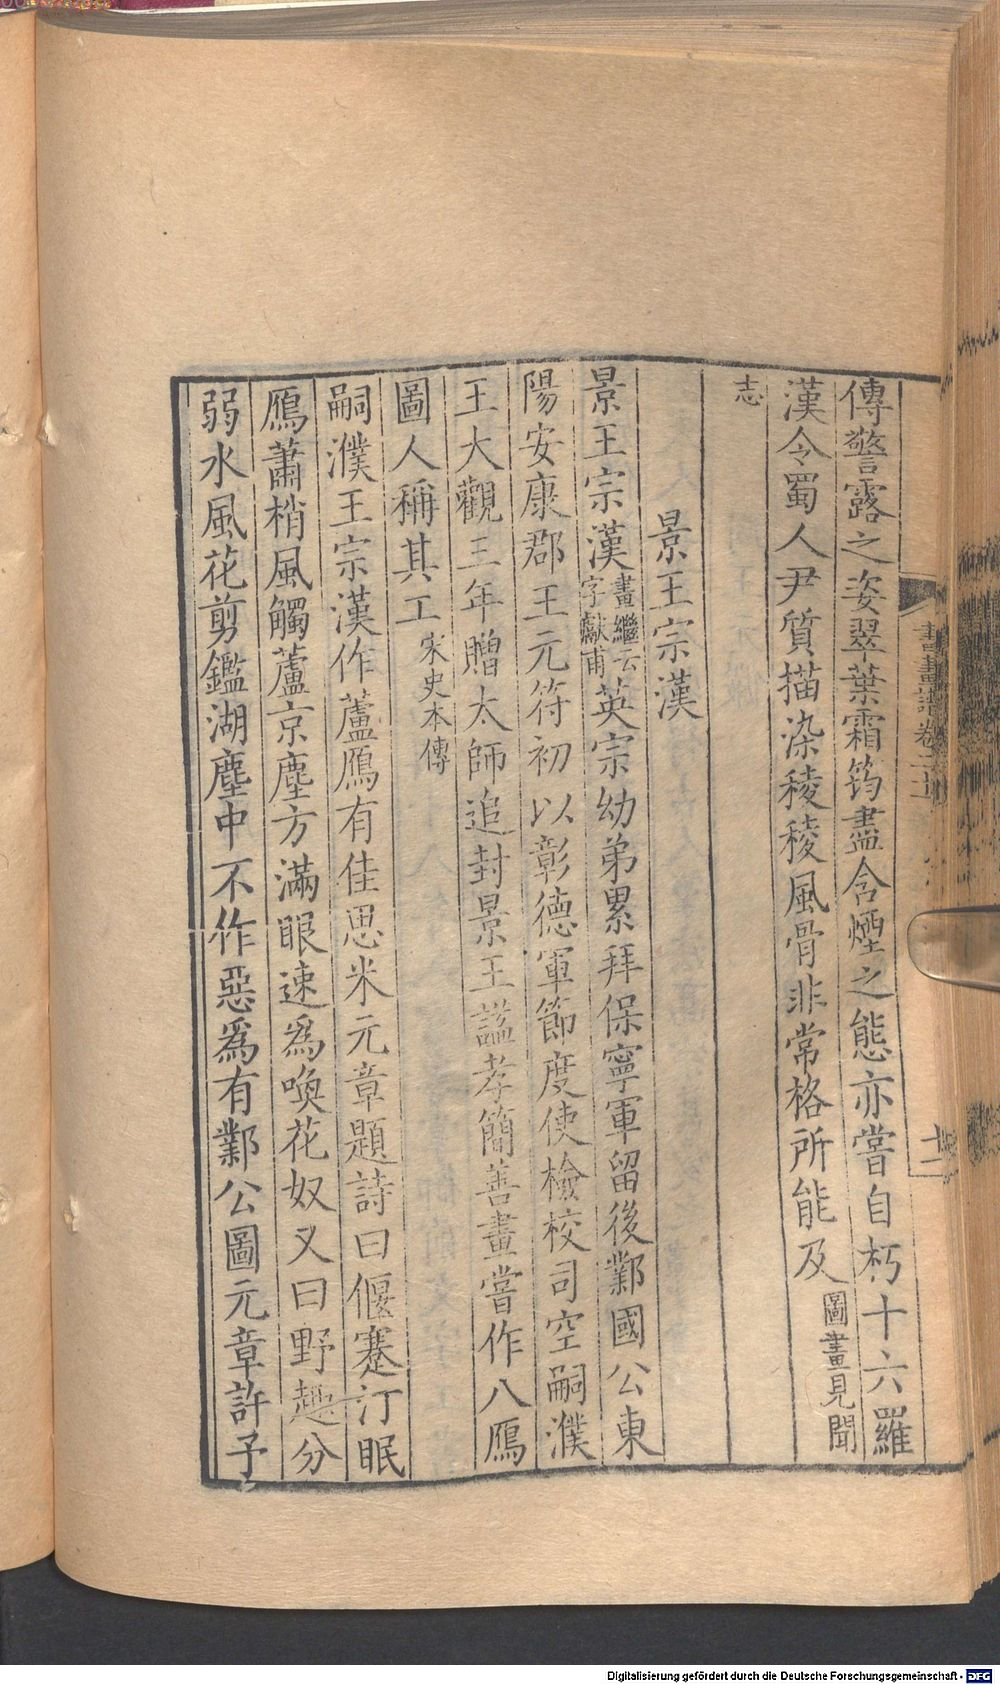 傳警露之姿翠葉霜筠盡含煙之態亦嘗自朽十六羅
漢令蜀人尹質描染稜稜風骨非常格所能及圖畫見聞
志
景王宗漢
景王宗漢畫繼云字獻甫英宗幼弟累拜保寧軍留後鄴國公東
陽安康郡王元符初以彰德軍節度使檢校司空嗣濮
王大觀三年贈太師追封景王諡孝簡善畫嘗作八鴈
圖人稱其工宋史本傳
嗣濮王宗漢作蘆鴈有佳思米元章題詩曰偃蹇汀眠
鴈蕭梢風觸蘆京塵方滿眼速爲喚花奴又曰野趣分
弱水風花剪鑑湖塵中不作惡爲有鄴公圖元章許予
書畫譜卷
十二
Digitalisierung gefördert durch die Deutsche Forschungsgemeinschaft - DFG